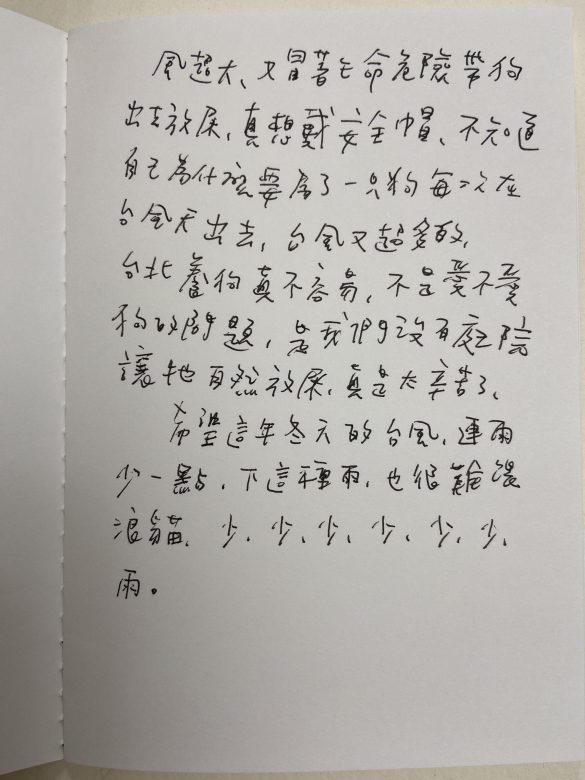 風超大、又冒著生命危險帶狗
出去放尿,真想戴安全帽、不知道
自己為什麼要為了一只狗每次在
台風天出去,台風又超多的,
台北養狗真不容易,不是愛不愛
狗的問題,是我們沒有庭院
讓牠自然放尿,真是太辛苦了、
希望這年冬天的台風,連雨
少一點,下這種雨,也很難餵
浪貓、少、少、少、少、少、少、
雨。